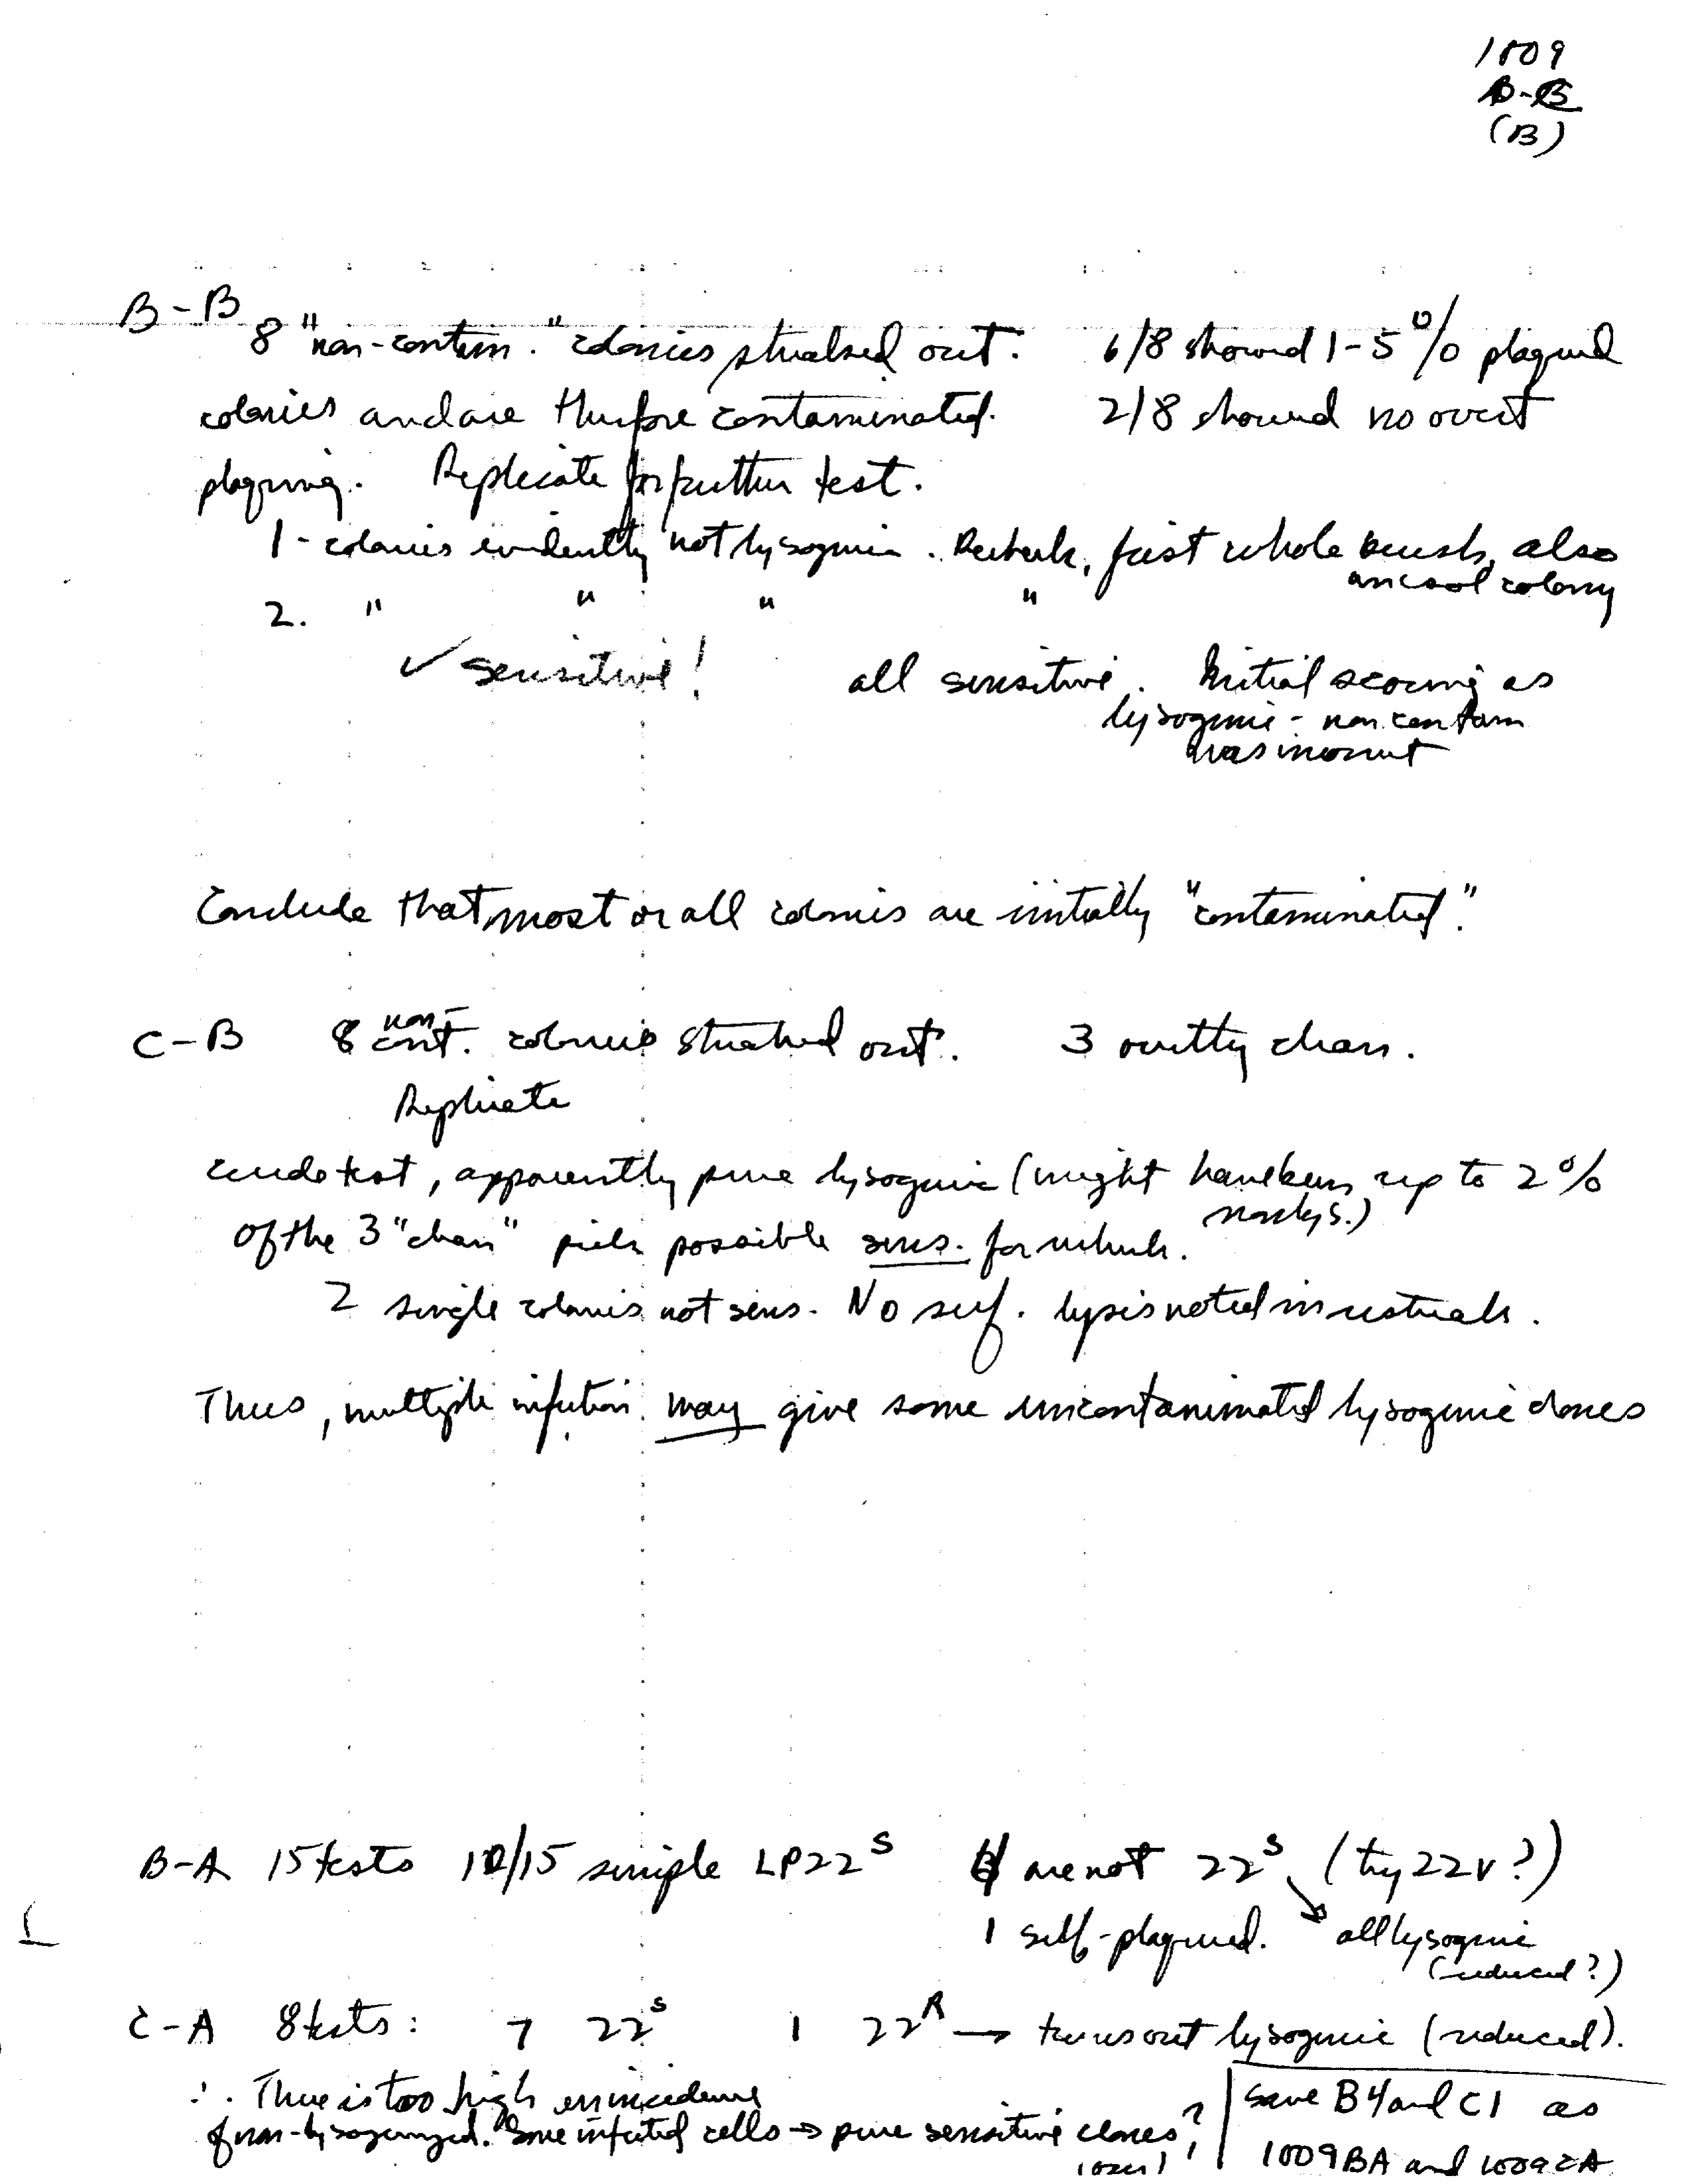 1009
B-B
(B)
B-B
8 "non-contam." colonies streaked out. 6/8 showed 1-5% plaqued
colonies and are therefore contaminated. 2/8 showed no overt
plaquing. Replicate for further test.
1 - colonies evidently not lysogenic. Recheck, first whole brush, also
an isol colony
2. " " " "
✓ sensitive! all sensitive. Initial scoring as
lysogenic - non contam
was incorrect
Conclude that most or all colonies are initially "contaminated".
C-B 8 non-cont. colonies streaked out. 3 overtly clean.
Replicate
crude test, apparently pure lysogenic (might have been up to 2%
nonlys.)
of the 3 "clean" pick possible sens. for recheck.
2 single colonies not sens. No self. lysis noted in restreak.
Thus, multiple infection may give some uncontaminated lysogenic clones
B-A 15 tests 10/15 simple LP22s 4 are not 22s (try 22v?)
1 self-plaqued. ↘ all lysogenic
(reduced?)
C-A 8 tests: 7 22s 1 22R → turns out lysogenic (reduced).
∴ There is too high an incidence
of non-lysogenized. Some infected cells → pure sensitive clones?
save B4 and C1 as
1009BA and 1009CA